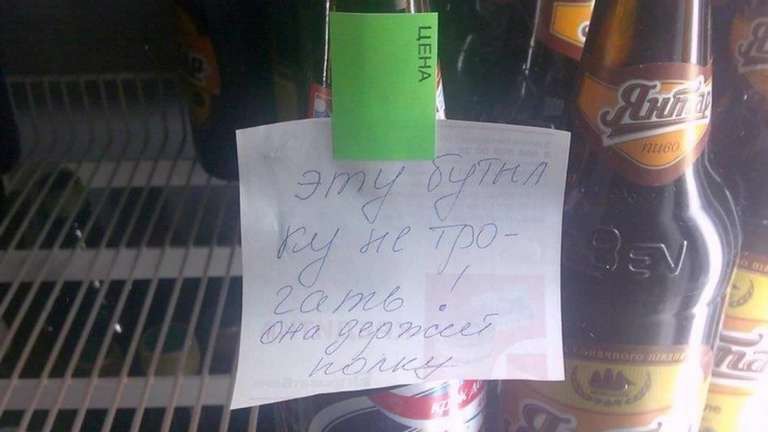 ЦЕНА
эту бутыл
ку не тро-
гать!
она держит
полку
Янтар
пиво
BEV
Янтар